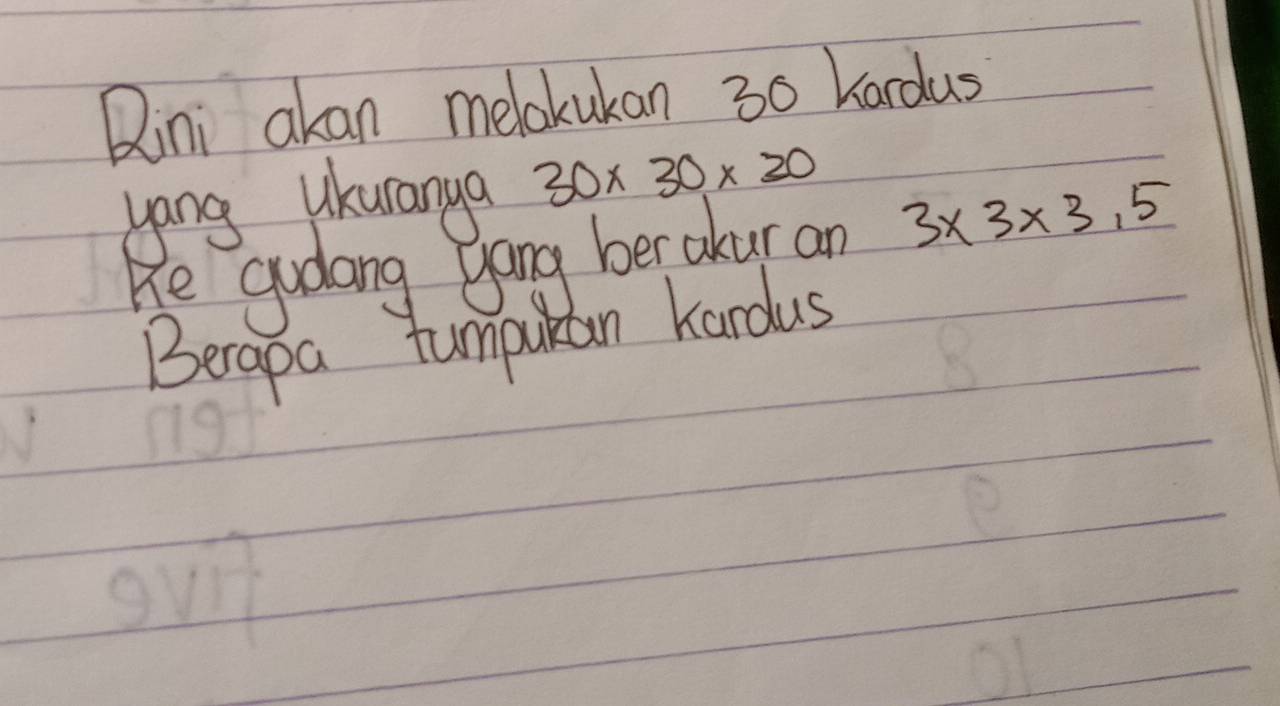 Rini akan melakukan 30 kardus
yang ukuranya 30x 30 x 20
Ke gudang yang berakuran 3x 3x 3,5
Berapa tumpukan kardus